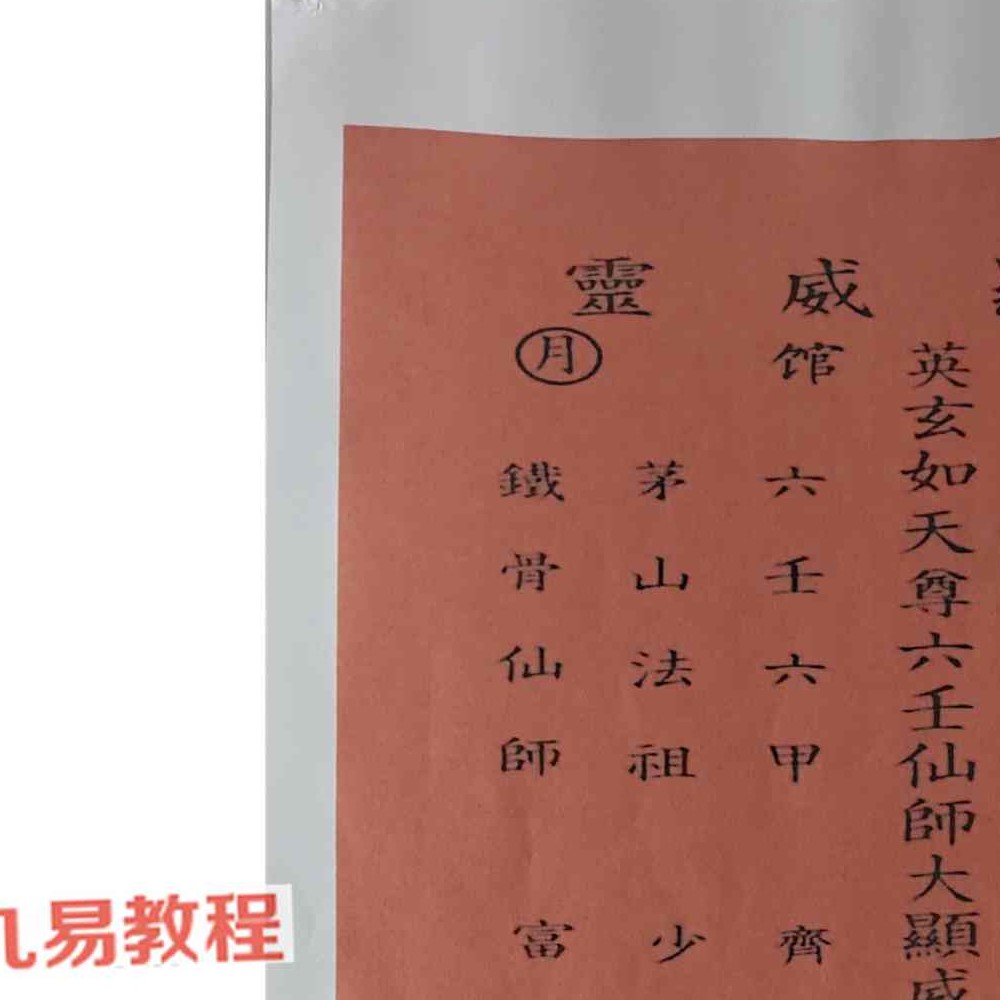 威靈
英玄如天尊六壬仙師大顯威
馆
六壬六甲 齊
茅山法祖 少
月
鐵骨仙師 富
易教程